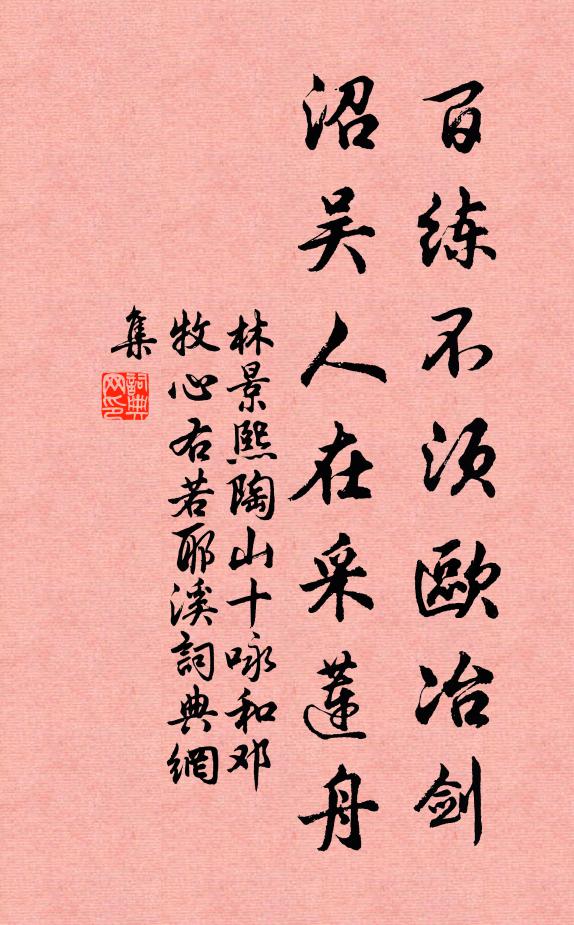 百练不须歐冶剑
沼吴人在采蓮舟
林景熙陶山十咏和邓
牧心右若耶溪詞典網
集
詞典
网印